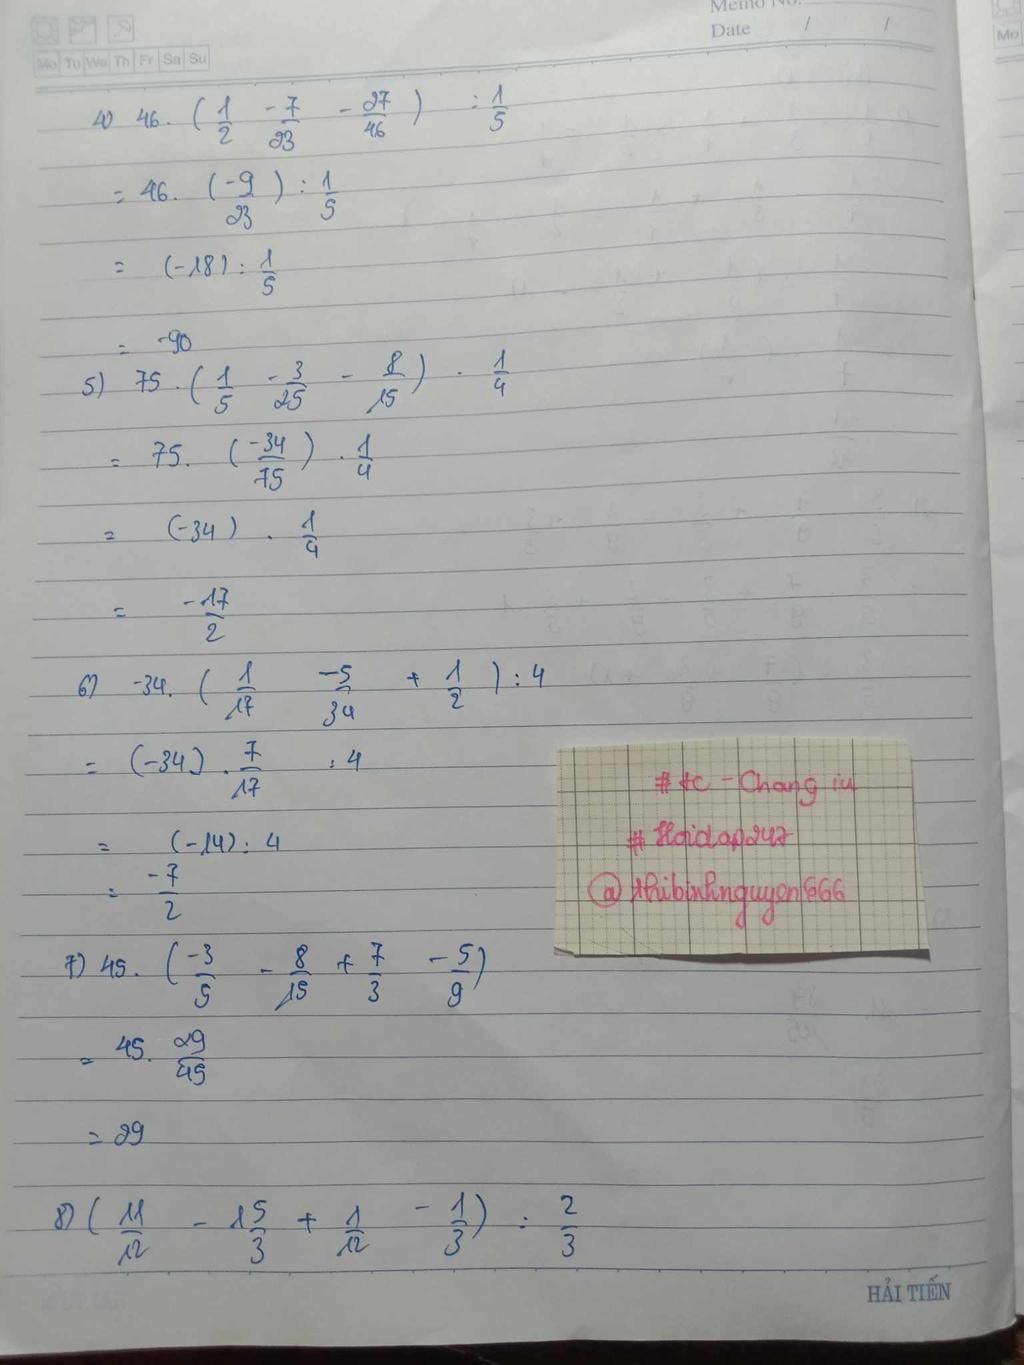 Memo No.
Date / /
Mo Tu We Th Fr Sa Su
Mo
4) 46. (1/2 - 7/23 - 27/46) : 1/5
= 46. (-9/23) : 1/5
= (-18) : 1/5
= -90
5) 75. (1/5 - 3/25 - 8/15) . 1/4
= 75. (-34/75) . 1/4
= (-34) . 1/4
= -17/2
6) -34. (1/17 -5/34 + 1/2) : 4
= (-34) . 7/17 : 4
= (-14) : 4
= -7/2
# tc - Chang iu
# Hoidap247
@ nhibinhnguyen666
7) 45. (-3/5 - 8/15 + 7/3 - 5/9)
= 45. 29/45
= 29
8) (11/12 - 15/3 + 1/12 - 1/3) : 2/3
HẢI TIẾN